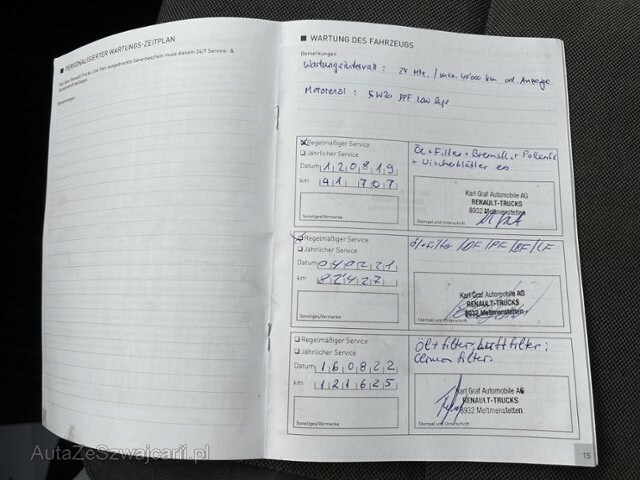 PERSONALISIERTER WARTUNGS-ZEITPLAN
Bemerkungen:
WARTUNG DES FAHRZEUGS
Bemerkungen:
Wartungsintervall : 24 Mte. / max. 40'000 km od. Anzeige
Motorenöl : 5W30 DPF Low
Regelmäßiger Service
Jährlicher Service
Datum 120819
km 41707
Sonstiges/Vermerke
Öl + Filter + Bremsfl. + Pollenfil
+ Wischerblätter
Karl Graf Automobile AG
RENAULT-TRUCKS
8932 Mettmenstetten
Stempel und Unterschrift
Regelmäßiger Service
Jährlicher Service
Datum 040221
km 82427
Sonstiges/Vermerke
Öl + Filter / DF / PF / BF / LF
Karl Graf Automobile AG
RENAULT-TRUCKS
8932 Mettmenstetten
Regelmäßiger Service
Jährlicher Service
Datum 160822
km 121625
Sonstiges/Vermerke
Öl + filter, Luftfilter,
filter.
Karl Graf Automobile AG
RENAULT-TRUCKS
8932 Mettmenstetten
Stempel und Unterschrift
15
AutaZeSzwajcarii.pl